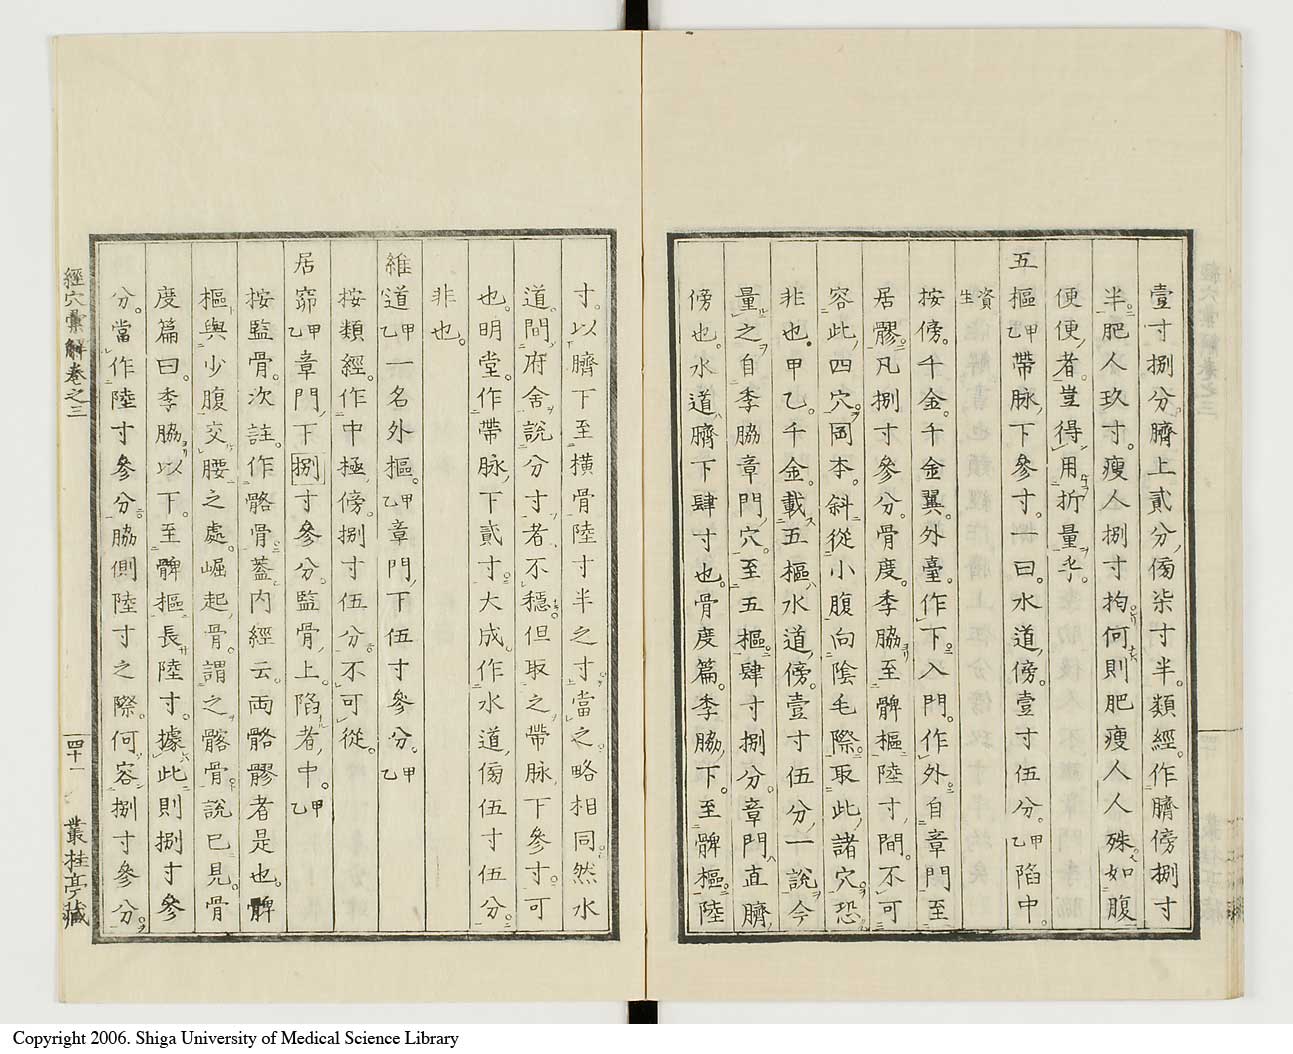 壹寸捌分。臍上貳分、傍柒寸半。類經。作臍傍捌寸
半。肥人玖寸。瘦人捌寸拘何則肥瘦人人殊。如腹
便便者。豈得用折量乎。
五樞甲乙帶脉下參寸。一曰。水道傍。壹寸伍分。甲乙陷中。
資生
按傍。千金。千金翼。外臺。作下。入門。作外。自章門至
居髎。凡捌寸參分。骨度。季脇至髀樞陸寸間。不可
容此四穴。岡本。斜從小腹向陰毛際。取此諸穴。恐
非也。甲乙。千金。載五樞水道傍。壹寸伍分、一說。今
量之。自季脇章門穴。至五樞。肆寸捌分。章門直臍
傍也。水道臍下肆寸也。骨度篇。季脇下。至髀樞。陸
寸。以臍下至橫骨陸寸半之寸。當之。略相同。然水
道問。府舍說分寸者不穩。但取之帶脉下參寸。可
也。明堂。作帶脉下貳寸。大成。作水道傍伍寸伍分。
非也。
維道甲乙一名外樞。甲乙章門下伍寸參分。甲乙
按類經。作中極傍。捌寸伍分。不可從。
居窌甲乙章門下捌寸參分。監骨上。陷者中。甲乙
按監骨。次註。作髂骨。蓋內經云。兩髂髎者是也。髀
樞與少腹交腰之處。崛起骨。謂之髂骨。說已見。骨
度篇曰。季脇以下。至髀樞。長陸寸。據此則捌寸參
分。當作陸寸參分。脇側陸寸之際。何容捌寸參分。
經穴彙解卷之三
四十一
叢桂亭藏